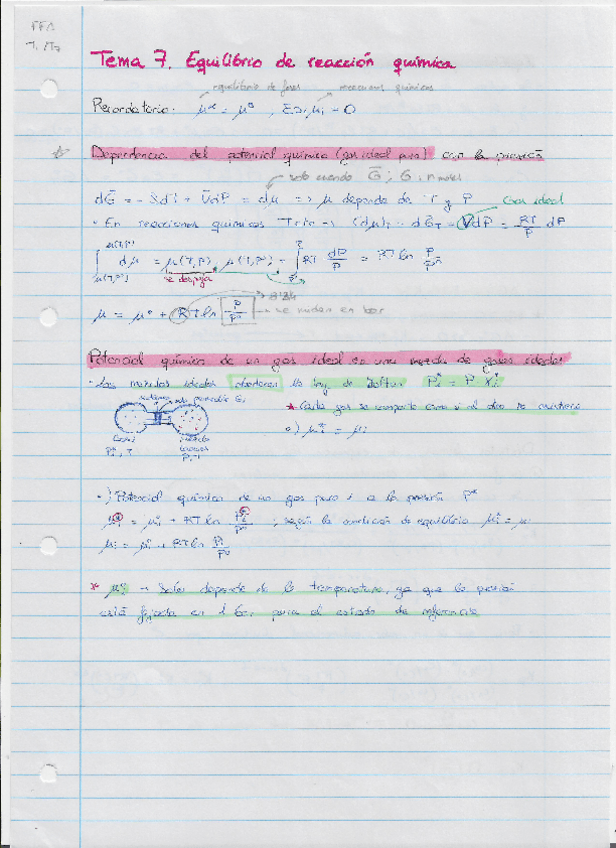 FFA
Tema 7. Equilibrio de reacción química
equilibrio de fases reacciones químicas
Recordatorio: μ^α = μ^β , Σ νi μi = 0
Dependencia del potencial químico (gas ideal puro) con la presión
solo cuando G̅ ; G, n moles
dG̅ = - S̅dT + V̅dP = dμ => μ depende de T y P Gas ideal
· En reacciones químicas T cte → (dμ)T = dGT = V̅dP = RT/P dP
∫ dμ = μ(T,P) - μ(T,P°) = ∫ RT dP/P = RT ln P/P°
se despeja
8'314
μ = μ° + RT ln P/P° → se miden en bar
Potencial químico de un gas ideal en una mezcla de gases ideales
· Las mezclas ideales obedecen la ley de Dalton Pi = P Xi
* Cada gas se comporta como si el otro no existiera
P, T
·) μi* = μi
·) Potencial químico de un gas puro i a la presión P*
μi* = μi° + RT ln Pi*/P° ; según la condición de equilibrio μi* = μi
μi = μi° + RT ln Pi/P°
* μi° → Solo depende de la temperatura, ya que la presión
está fijada en 1 bar para el estado de referencia